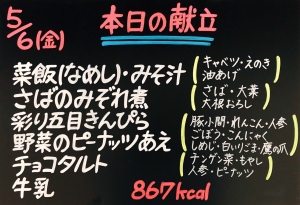 5/6(金) 本日の献立
菜飯(なめし)・みそ汁
(キャベツ・えのき
油あげ)
さばのみぞれ煮
(さば・大葉
大根おろし)
彩り五目きんぴら
(豚小間・れんこん・人参
ごぼう・こんにゃく
しめじ・白いりごま・鷹の爪)
野菜のピーナッツあえ
(チンゲン菜・もやし
人参・ピーナッツ)
チョコタルト
牛乳
867kcal